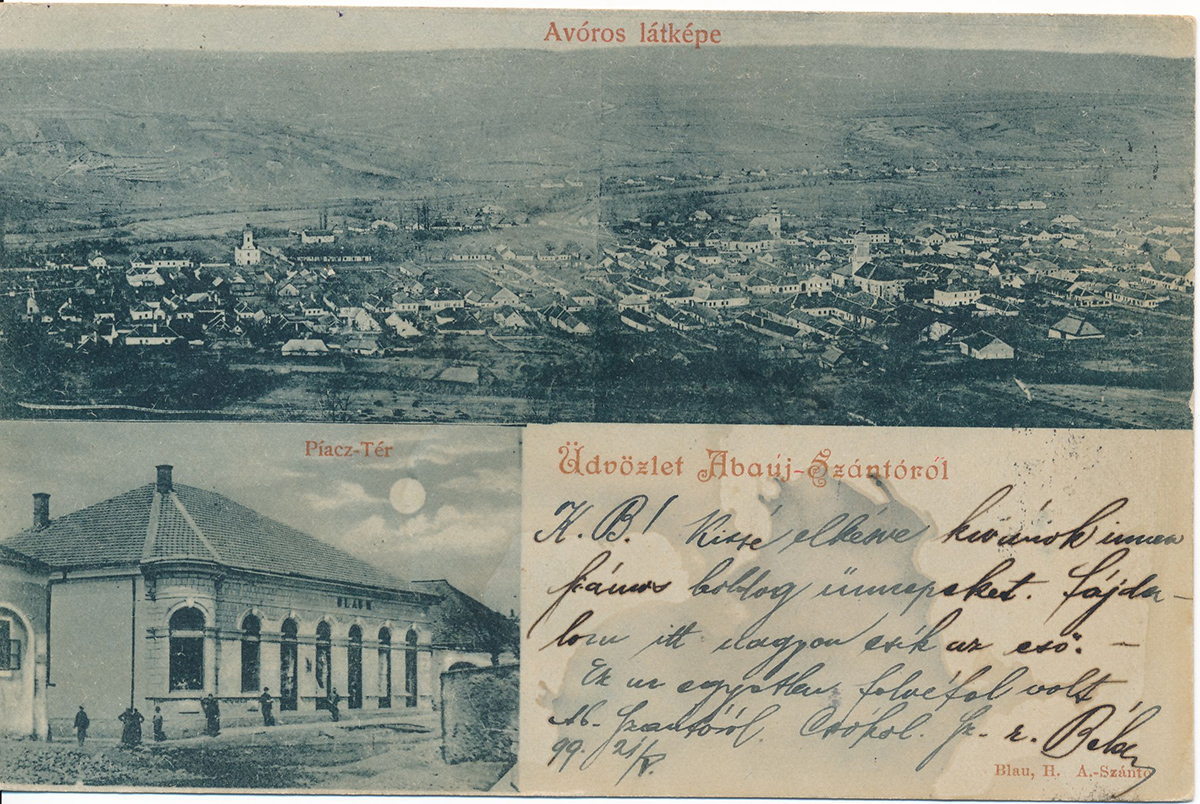 Avóros látképe
Píacz-Tér
BLAU H.
Üdvözlet Abaúj-Szántóról
K. B.! Kissé elkésve kívánok innen
számos boldog ünnepeket. Fájda-
lom itt nagyon esik az eső. —
Ez az egyetlen felvétel volt
Ab. Szántóról. Csókol. Sz. r. Béla
99. 21/V.
Blau, H. A.-Szántó